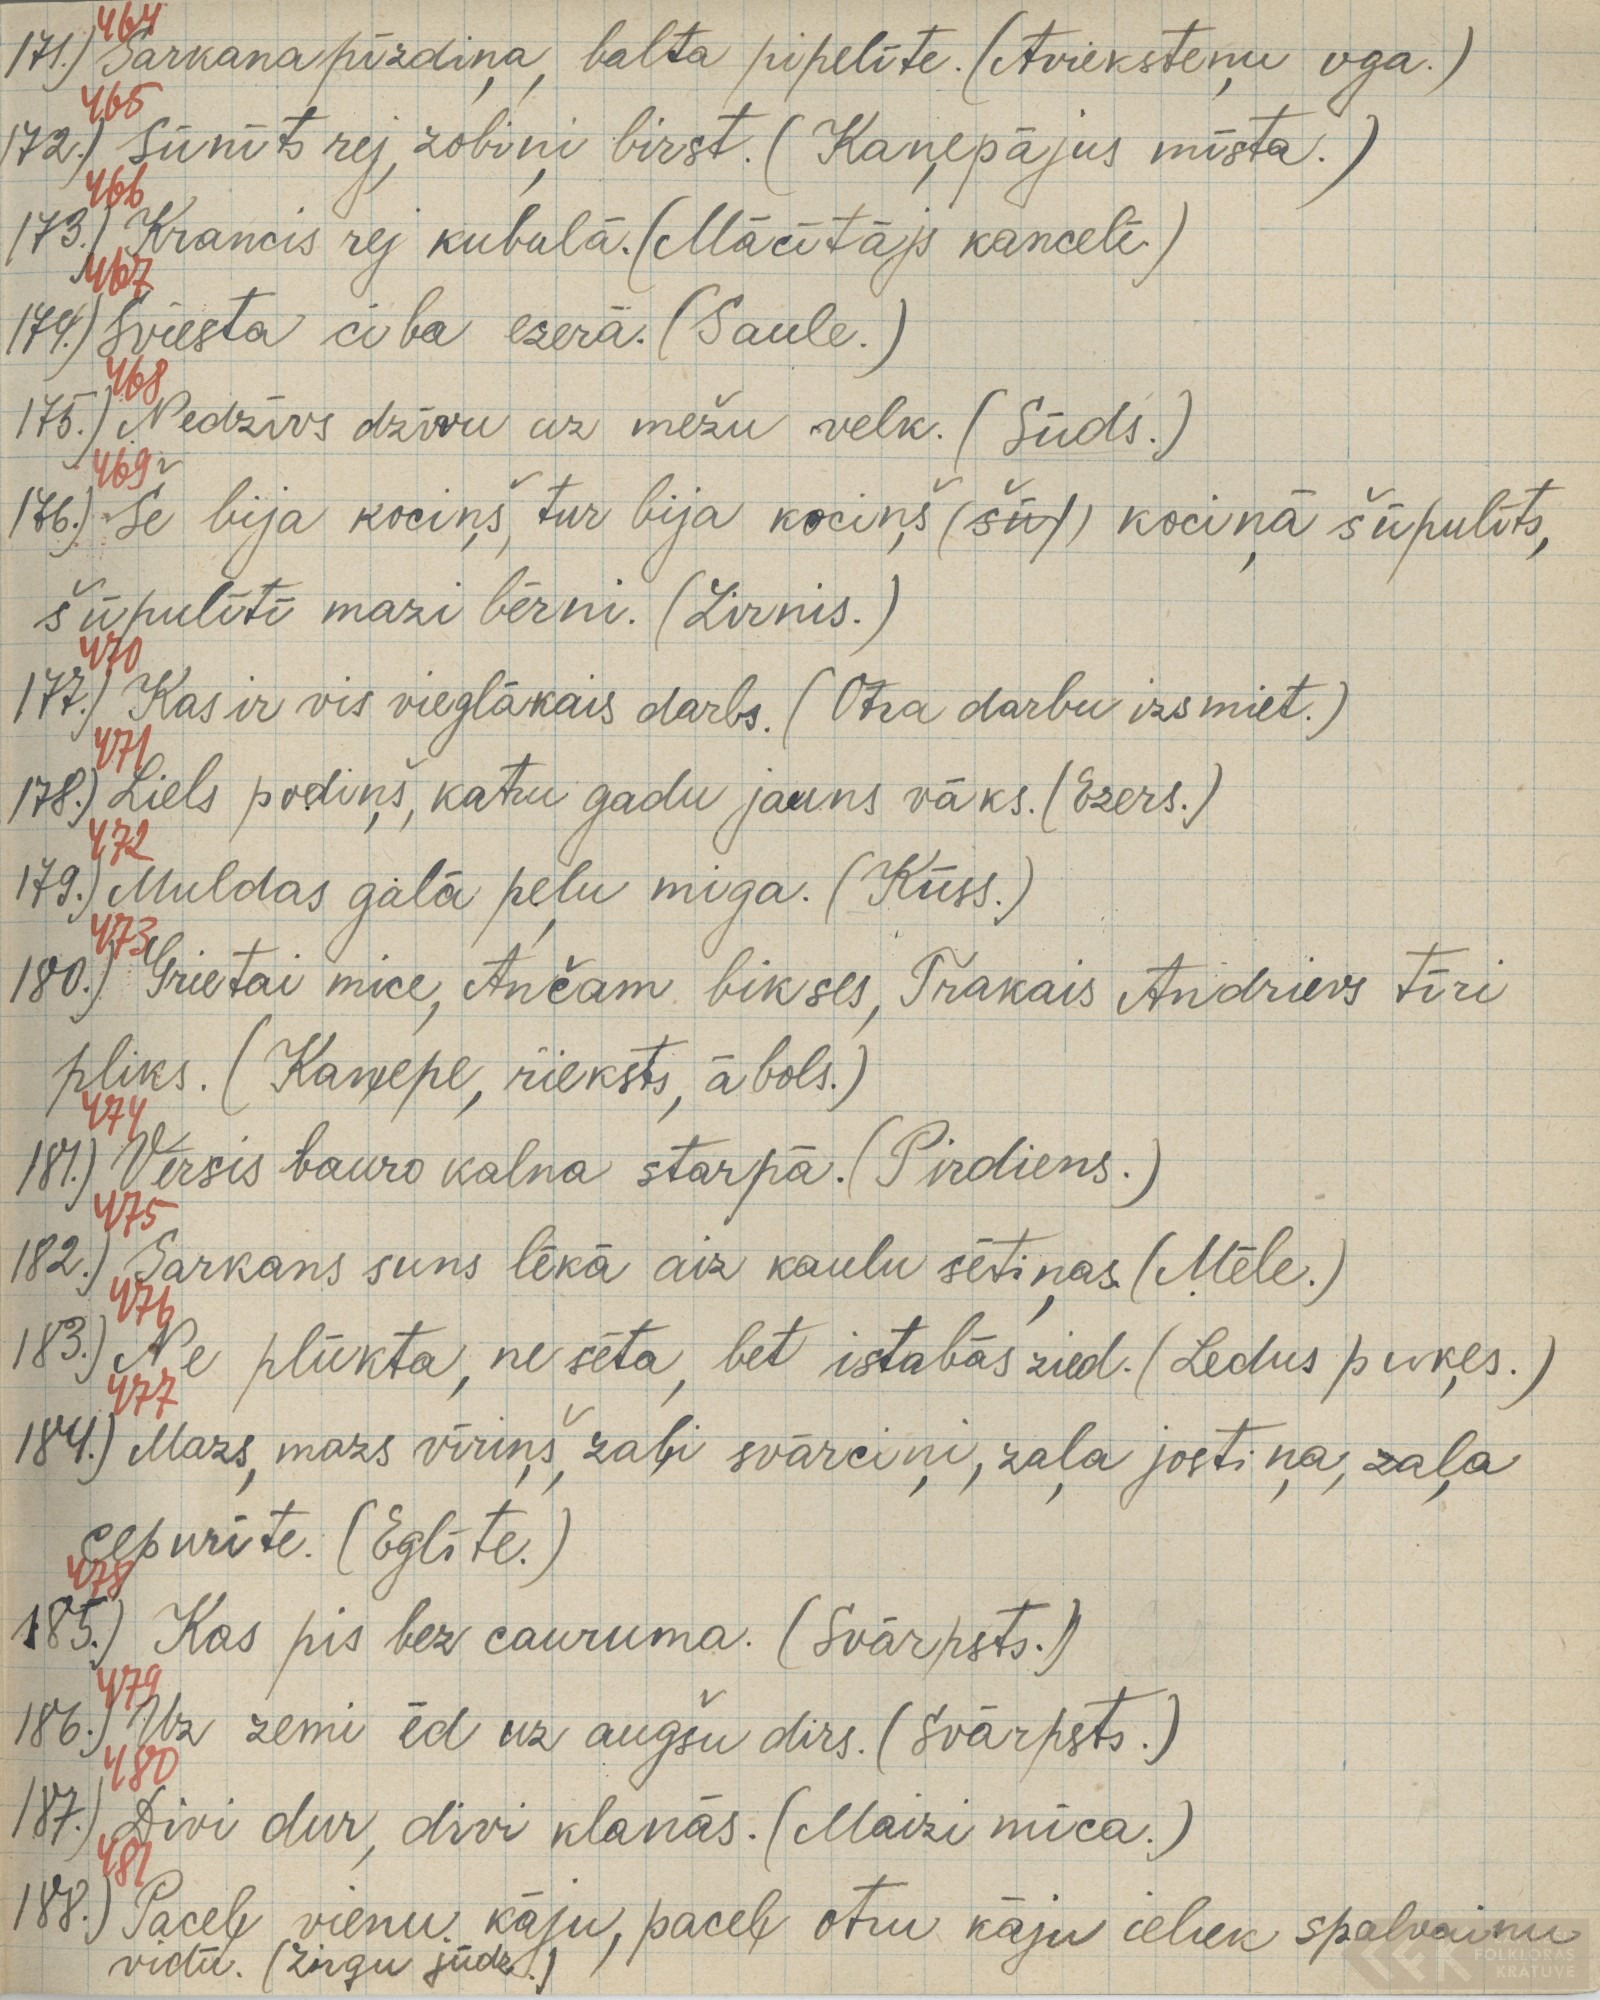 464
171.) Sarkana pīzdiņa, balta pipelīte. (Avieksteņu oga.)
465
172.) Sūnīts rej, zobiņi birst. (Kaņepājus mīsta.)
466
173.) Krancis rej kubulā. (Mācītājs kancelē.)
467
174.) Sviesta ciba ezerā. (Saule.)
468
175.) Nedzīvs dzīvu uz mežu velk. (Sūds.)
469
176.) Še bija kociņš, tur bija kociņš (šū) kociņā šūpulīts,
šūpulītī mazi bērni. (Zirnis.)
470
177.) Kas ir vis vieglākais darbs. (Otra darbu izsmiet.)
471
178.) Liels podiņš, katru gadu jauns vāks. (Ezers.)
472
179.) Muldas galā peļu miga. (Kūss.)
473
180.) Grietai mice, Ančam bikses, Trakais Andrievs tīri
pliks. (Kaņepe, rieksts, ābols.)
474
181.) Vērsis bauro kalna starpā. (Pirdiens.)
475
182.) Sarkans suns lēkā aiz kaulu sētiņas. (Mēle.)
476
183.) Ne plūkta, ne sēta, bet istabās zied. (Ledus puķes.)
477
184.) Mazs, mazs vīriņš, zaļi svārciņi, zaļa jostiņa, zaļa
cepurīte. (Eglīte.)
478
185.) Kas pis bez cauruma. (Svārpsts.)
479
186.) Uz zemi ēd uz augšu dirs. (Svārpsts.)
480
187.) Divi dur, divi klanās. (Maizi mīca.)
481
188.) Paceļ vienu kāju, paceļ otru kāju ieliek spalvainu
vidū. (Zirgu jūdz.)
LFK FOLKLORAS
KRĀTUVE